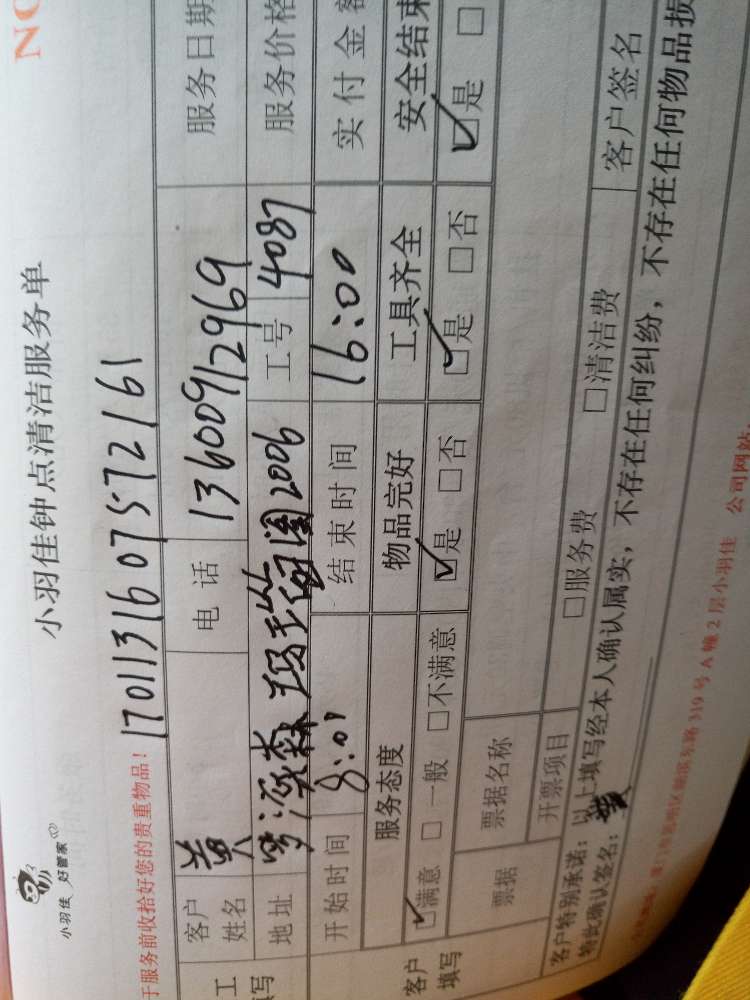 小羽佳 好管家
小羽佳钟点清洁服务单
NO
于服务前收拾好您的贵重物品！
1701131607572161
客户姓名 黄 电话 13600912969 服务日期
地址 2006 工号 4087 服务价格
开始时间 8:01 结束时间 16:00 实付金额
服务态度 物品完好 工具齐全 安全结束
☑满意 □一般 □不满意 ☑是 □否 ☑是 □否 ☑是 □
工
填写
客户
填写
票据 票据名称
开票项目 □服务费 □清洁费
客户特别承诺：以上填写经本人确认属实，不存在任何纠纷，不存在任何物品损
特此确认签名： 客户签名
319号A幢2层小羽佳 公司网站